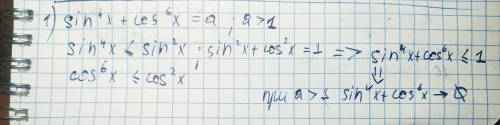 1) sin⁴x + cos⁶x = a ; a > 1
sin⁴x ≤ sin²x ; sin²x + cos²x = 1 => sin⁴x + cos⁶x ≤ 1
cos⁶x ≤ cos²x ⇓
при a > 1 sin⁴x + cos⁶x → ∅